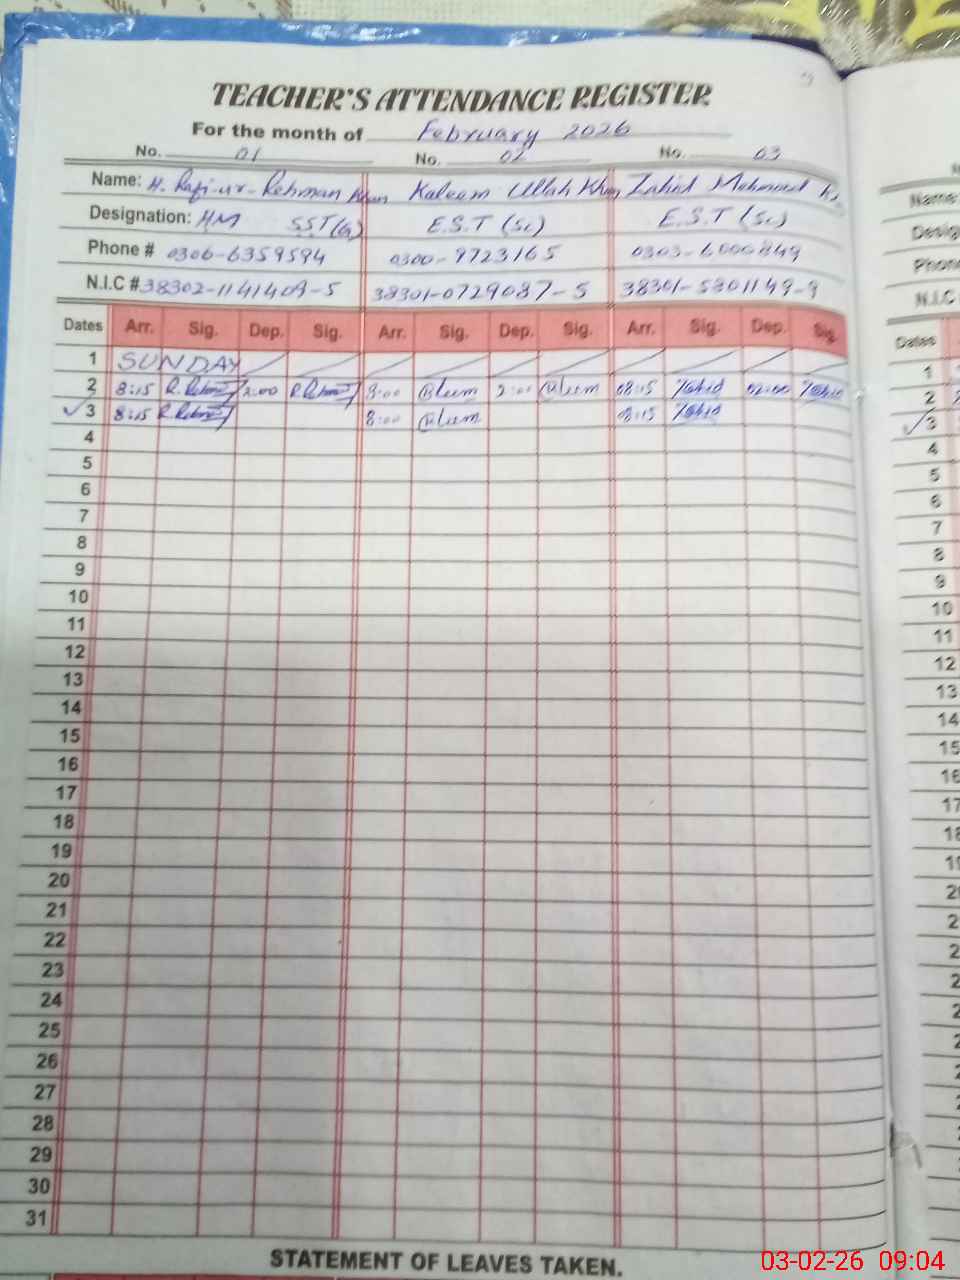 TEACHER'S ATTENDANCE REGISTER
For the month of February 2026
No. 01 No. 02 No. 03
Name: H. Rafi-ur-Rehman Khan Kaleem Ullah Khan Zahid Mehmood
Designation: HM SST(G) E.S.T (Sc) E.S.T (Sc)
Phone # 0306-6359594 0300-9723165 0303-6000849
N.I.C # 38302-1141409-5 38301-0729087-5 38301-5801149-9
Dates Arr. Sig. Dep. Sig. Arr. Sig. Dep. Sig. Arr. Sig. Dep. Sig.
1 SUNDAY
2 8:15 R.Rehman 2:00 R.Rehman 8:00 Kaleem 2:00 Kaleem 08:15 Zahid 02:00 Zahid
3 8:15 R.Rehman 8:00 Kaleem 08:15 Zahid
4
5
6
7
8
9
10
11
12
13
14
15
16
17
18
19
20
21
22
23
24
25
26
27
28
29
30
31
STATEMENT OF LEAVES TAKEN.
Name
Phone
N.I.C
Dates
1
2
3
4
5
6
7
8
9
10
11
12
13
14
15
16
17
18
03-02-26 09:04